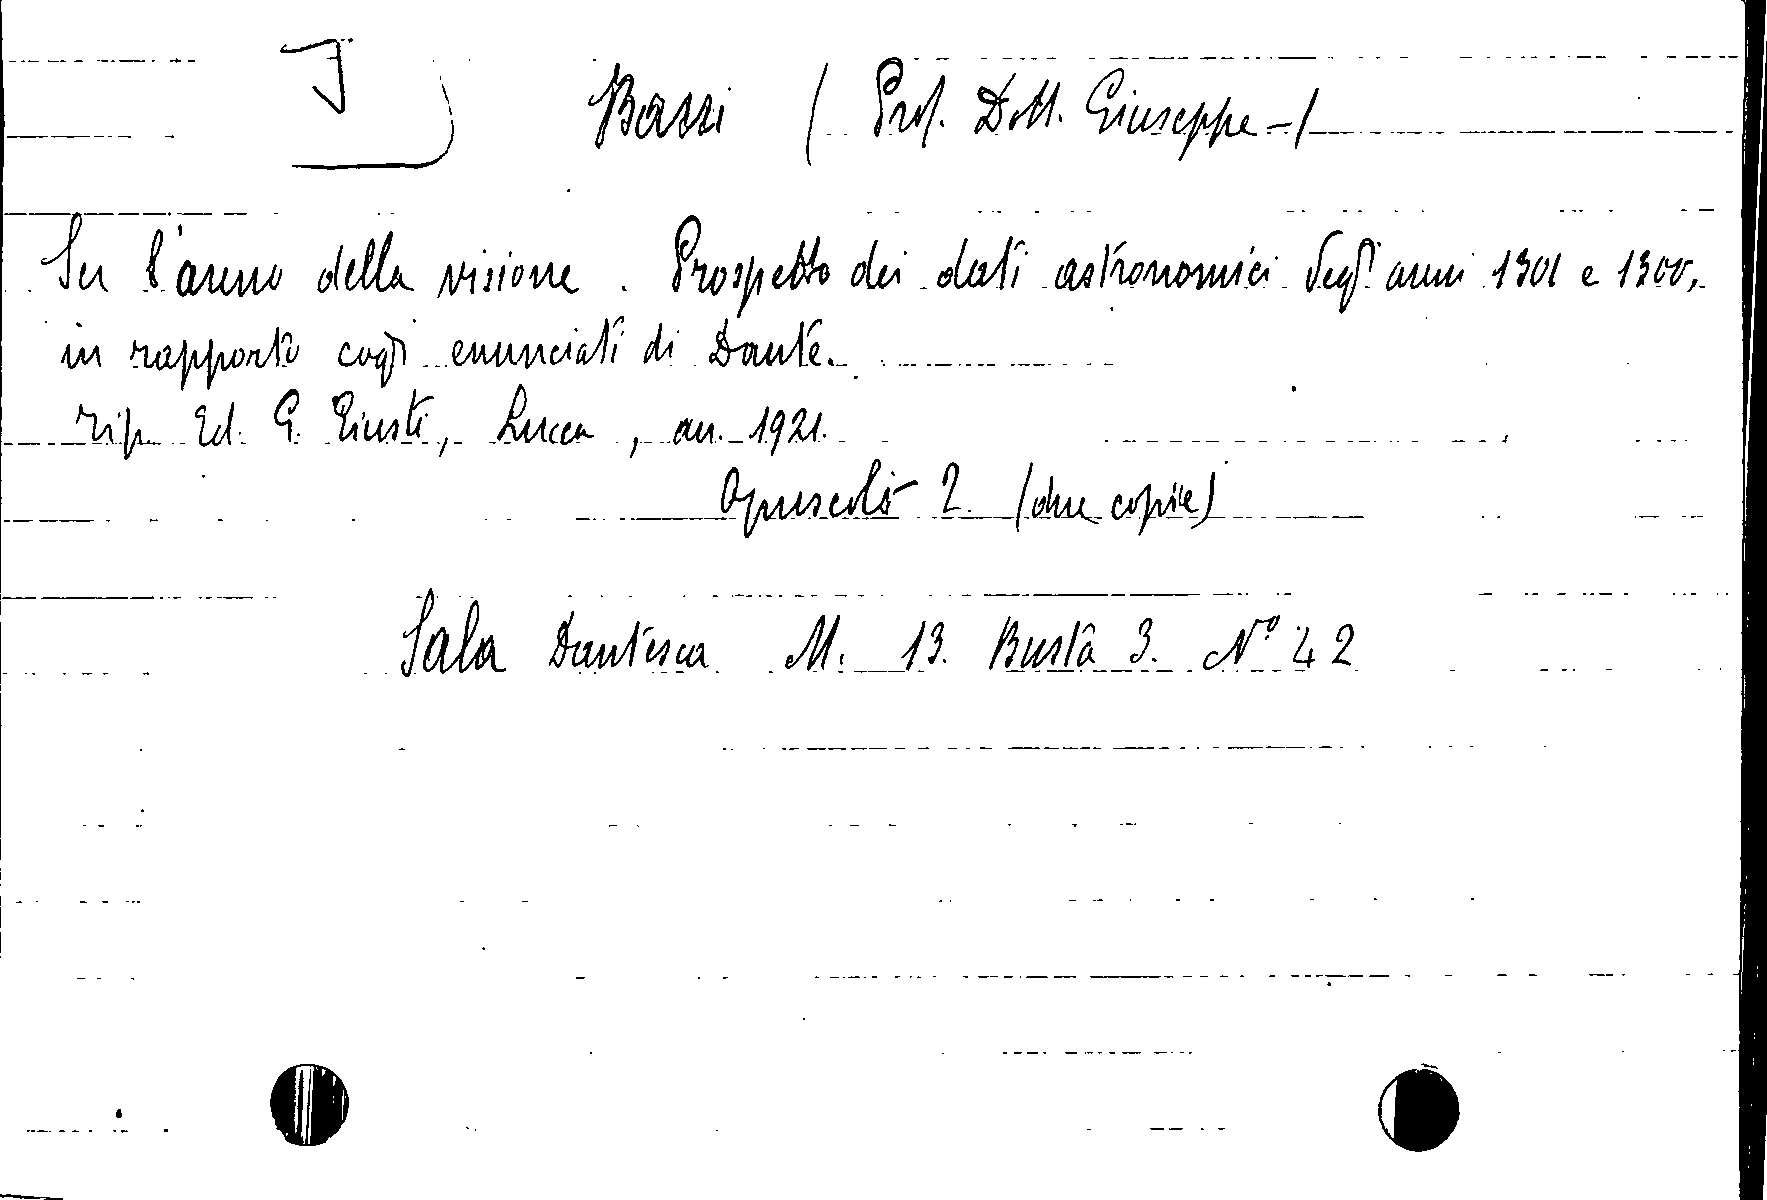 Bassi ( Prof. Dott. Giuseppe -)
Su l'anno della visione. Prospetto dei dati astronomici degli anni 1301 e 1300,
in rapporto cogli enunciati di Dante.
Tip. Ed. G. Giusti, Lucca, an. 1921.
Opuscolo 2 (due copie)
Sala Dantesca M. 13. Busta 3. Nº 42